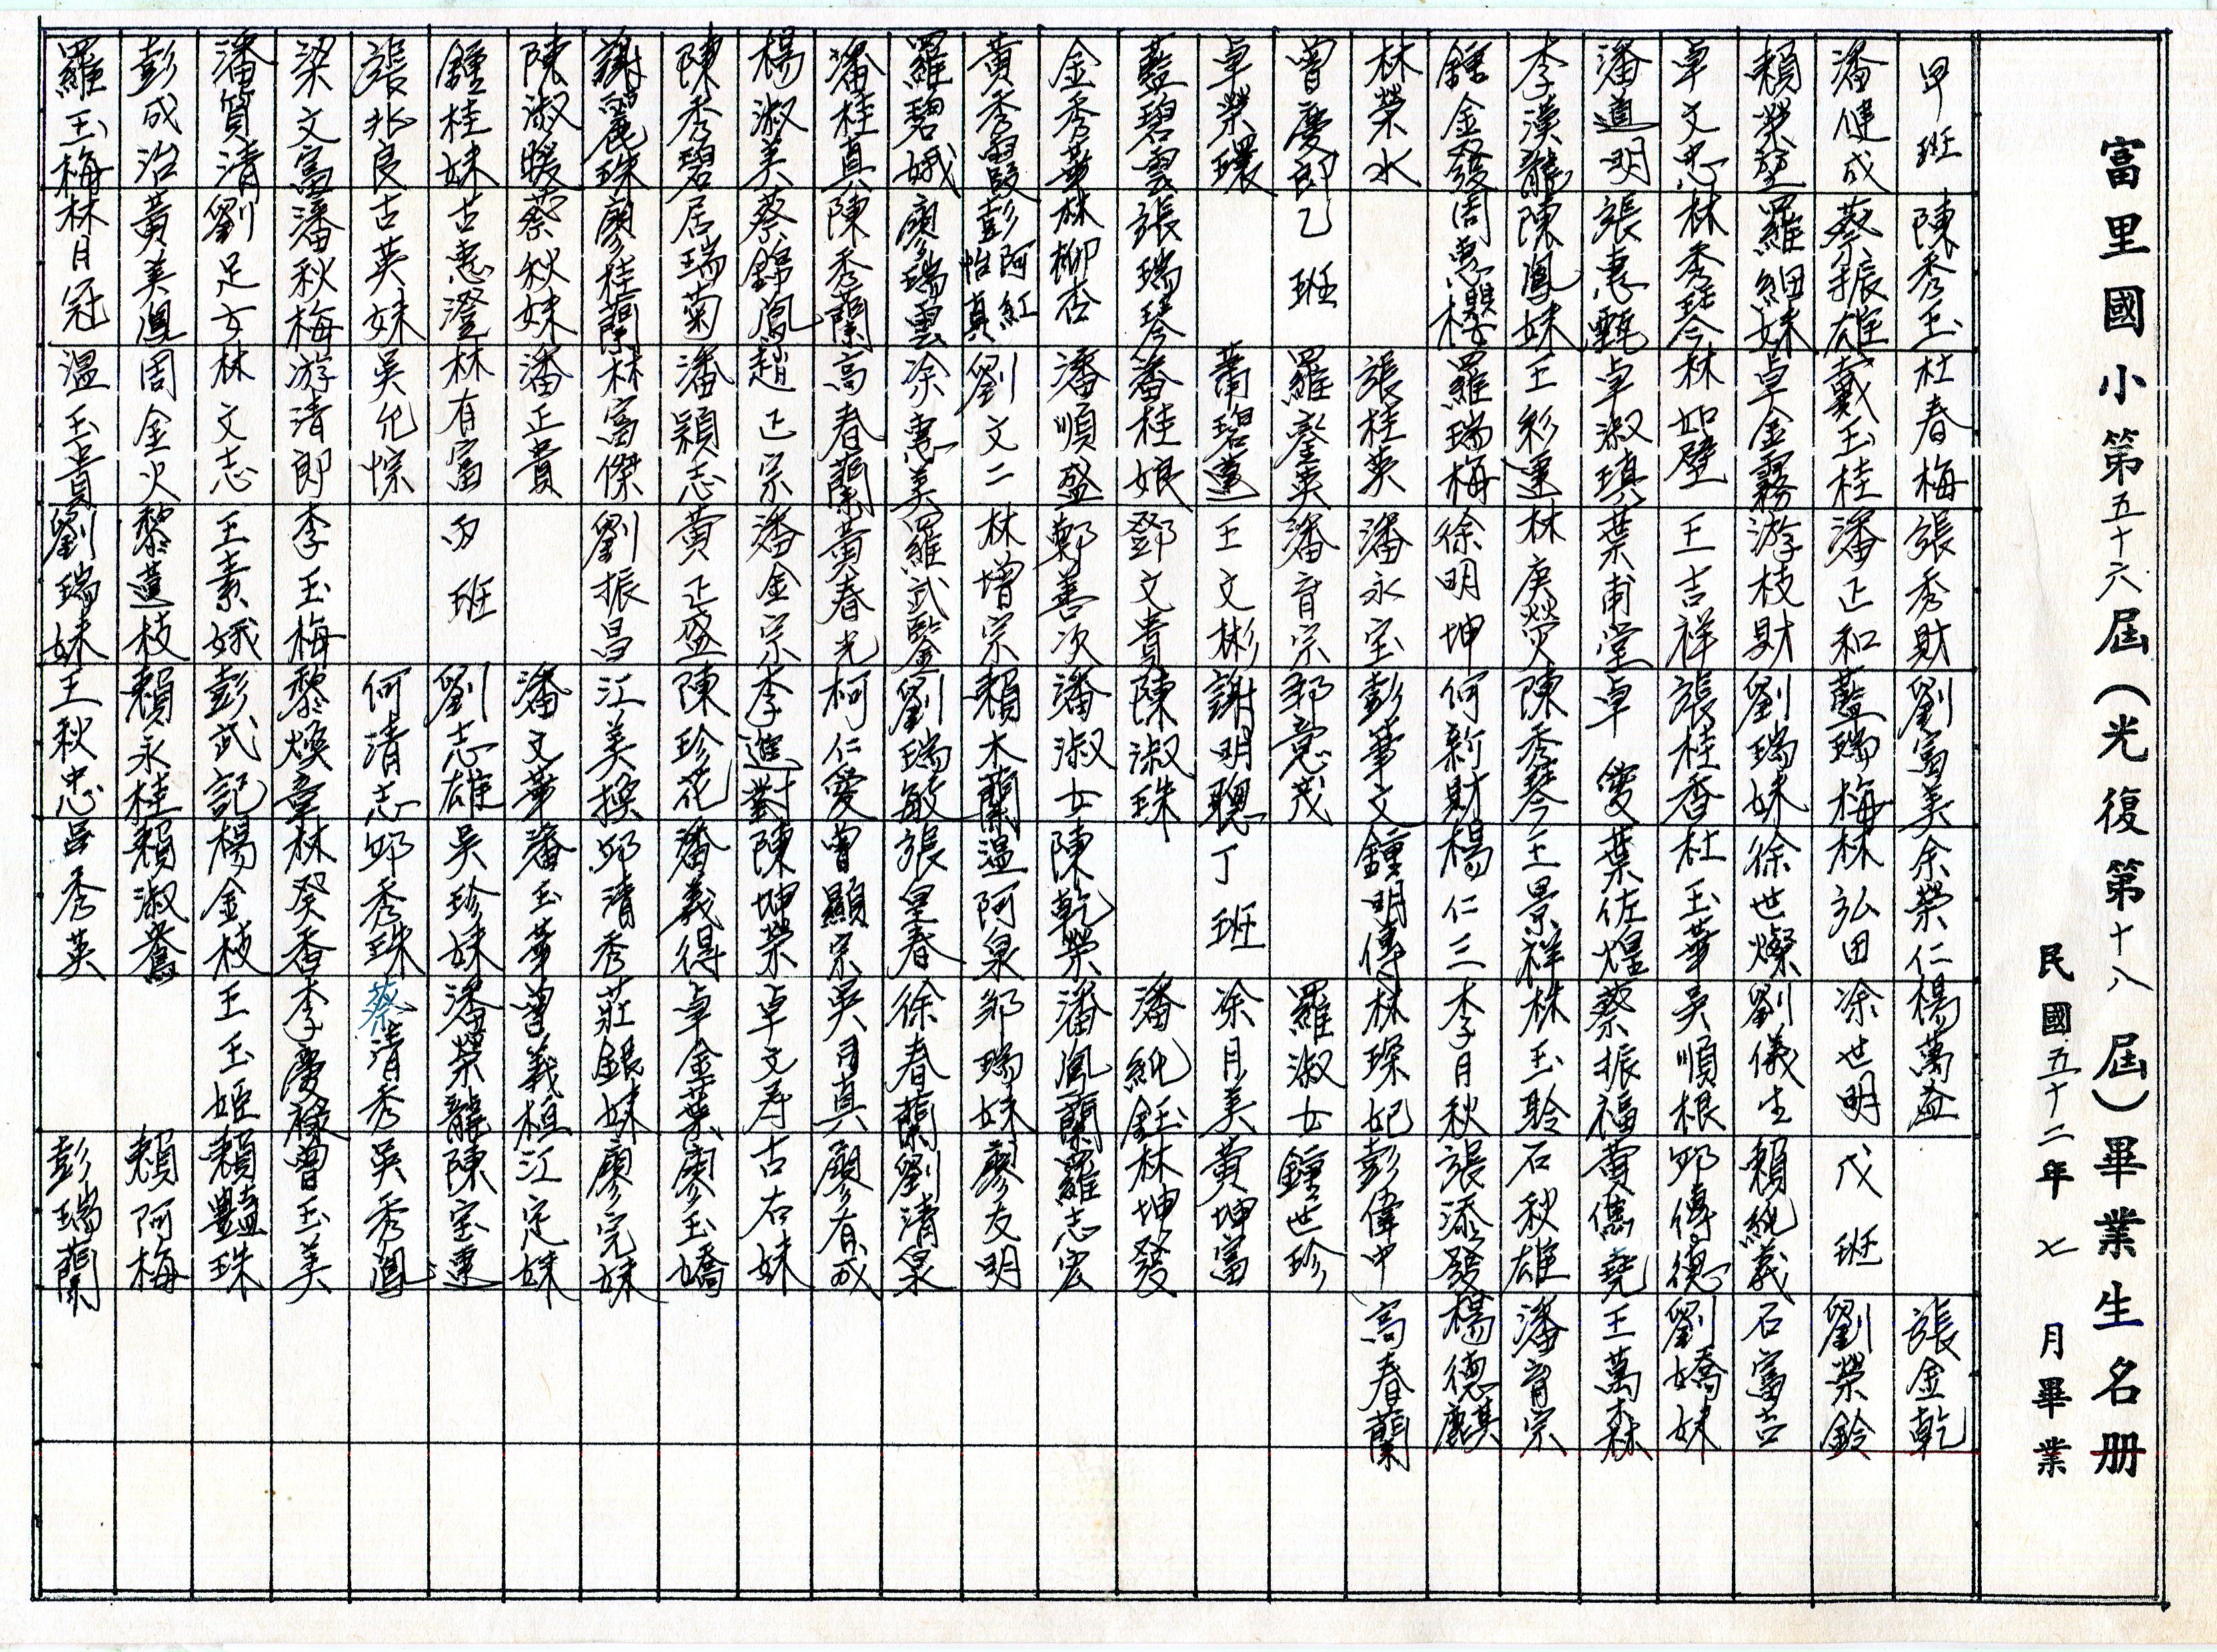 富里國小第五十六屆(光復第十八屆)畢業生名册
民國五十二年七月畢業
甲班
潘健成
賴榮堃
卓文忠
潘道明
李漢龍
鍾金發
林榮水
曾慶郎
卓榮環
藍碧雲
金秀華
黃秀霞
羅碧娥
潘桂真
楊淑美
陳秀碧
謝麗珠
陳淑暖
鍾桂妹
張兆良
梁文富
潘貿清
彭成治
羅玉梅
陳秀玉
蔡振雄
羅細妹
林秀琴
張惠甄
陳鳳妹
周惠櫻
乙班
張瑞琴
林柳杏
彭阿紅
怡真
廖瑞雲
陳秀蘭
蔡錦鳳
居瑞菊
廖桂蘭
蔡秋妹
古惠澄
古英妹
潘秋梅
劉足女
黃美鳳
林月冠
杜春梅
戴玉桂
卓金霧
林如壁
卓淑瑱
王彩蓮
羅瑞梅
張桂英
羅鑾英
蕭碧蓮
潘桂娘
潘順盛
劉文二
涂惠美
高春蘭
趙正宗
潘穎志
林富傑
潘正貴
林有富
吳允悰
游清郎
林文志
周金火
溫玉貴
張秀財
潘正和
游枝財
王吉祥
葉甫堂
林庚熒
徐明坤
潘永宝
潘育宗
王文彬
鄧文貴
鄭善次
林增宗
羅武鑒
黃春光
潘金宗
黃正盛
劉振昌
丙班
李玉梅
王素娥
黎蓮枝
劉瑞妹
劉富美
藍瑞梅
劉瑞妹
張桂香
卓雙
陳秀琴
何新財
彭華文
邹意茂
謝明聰
陳淑珠
潘淑女
賴木蘭
劉瑞敏
柯仁愛
李進對
陳珍花
江美換
潘文華
劉志雄
何清志
黎煥章
彭武記
賴永桂
王秋忠
余榮仁
林弘田
徐世燦
杜玉華
葉佐煌
王景祥
楊仁三
鍾明傳
丁班
陳乾榮
溫阿泉
張皇春
曾顯宗
陳坤榮
潘義得
邱清秀
潘玉華
吳珍妹
邱秀珠
林癸香
楊金枝
賴淑鴦
吕秀英
楊萬益
涂世明
劉儀生
吳順根
蔡振福
林玉聆
李月秋
林琛妃
羅淑女
涂月美
潘純鈺
潘鳳蘭
邹瑞妹
徐春蘭
吳月真
卓文寿
卓金葉
莊銀妹
曾義桓
潘榮龍
蔡清秀
李慶祿
王玉姬
戊班
賴純義
邱傳德
黃傳堯
石秋雄
張添發
彭偉中
鍾世珍
黃坤富
林坤發
羅志宏
廖友明
劉清泉
廖有成
古右妹
廖玉嬌
廖完妹
江定妹
陳宝蓮
吳秀鳳
曾玉美
賴豔珠
賴阿梅
彭瑞蘭
張金乾
劉榮鈴
石富吉
劉嬌妹
王萬森
潘育宗
楊德麒
高春蘭